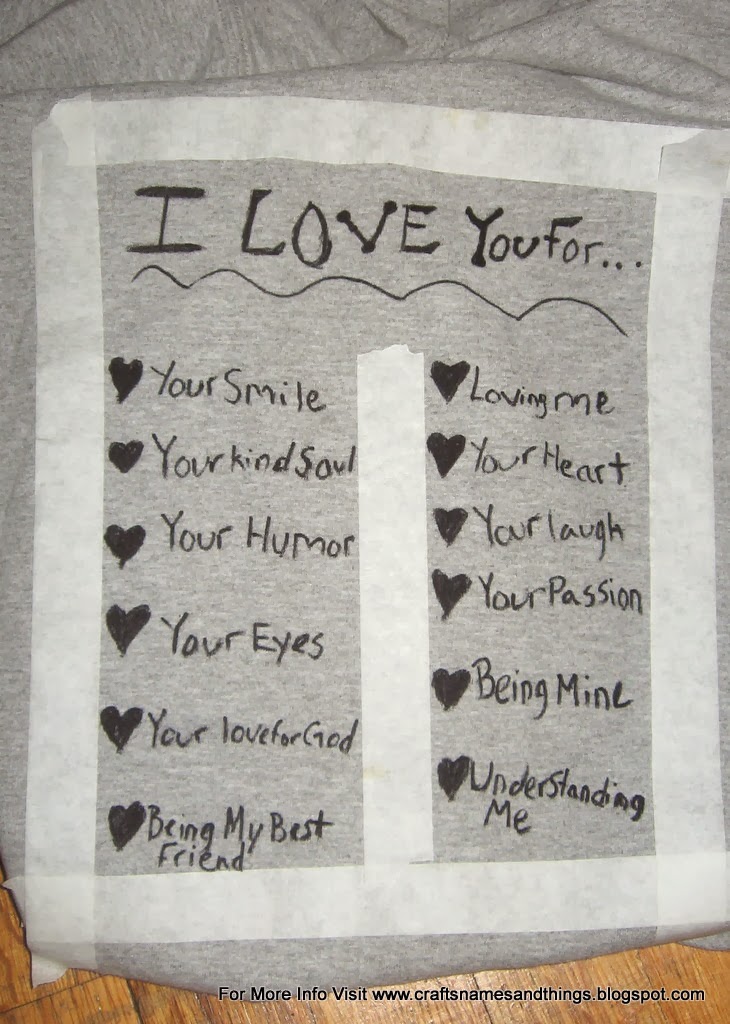 I LOVE You For...
Your Smile
Your kind Soul
Your Humor
Your Eyes
Your love for God
Being My Best
Friend
Loving me
Your Heart
Your laugh
Your Passion
Being Mine
Understanding
Me
For More Info Visit www.craftsnamesandthings.blogspot.com